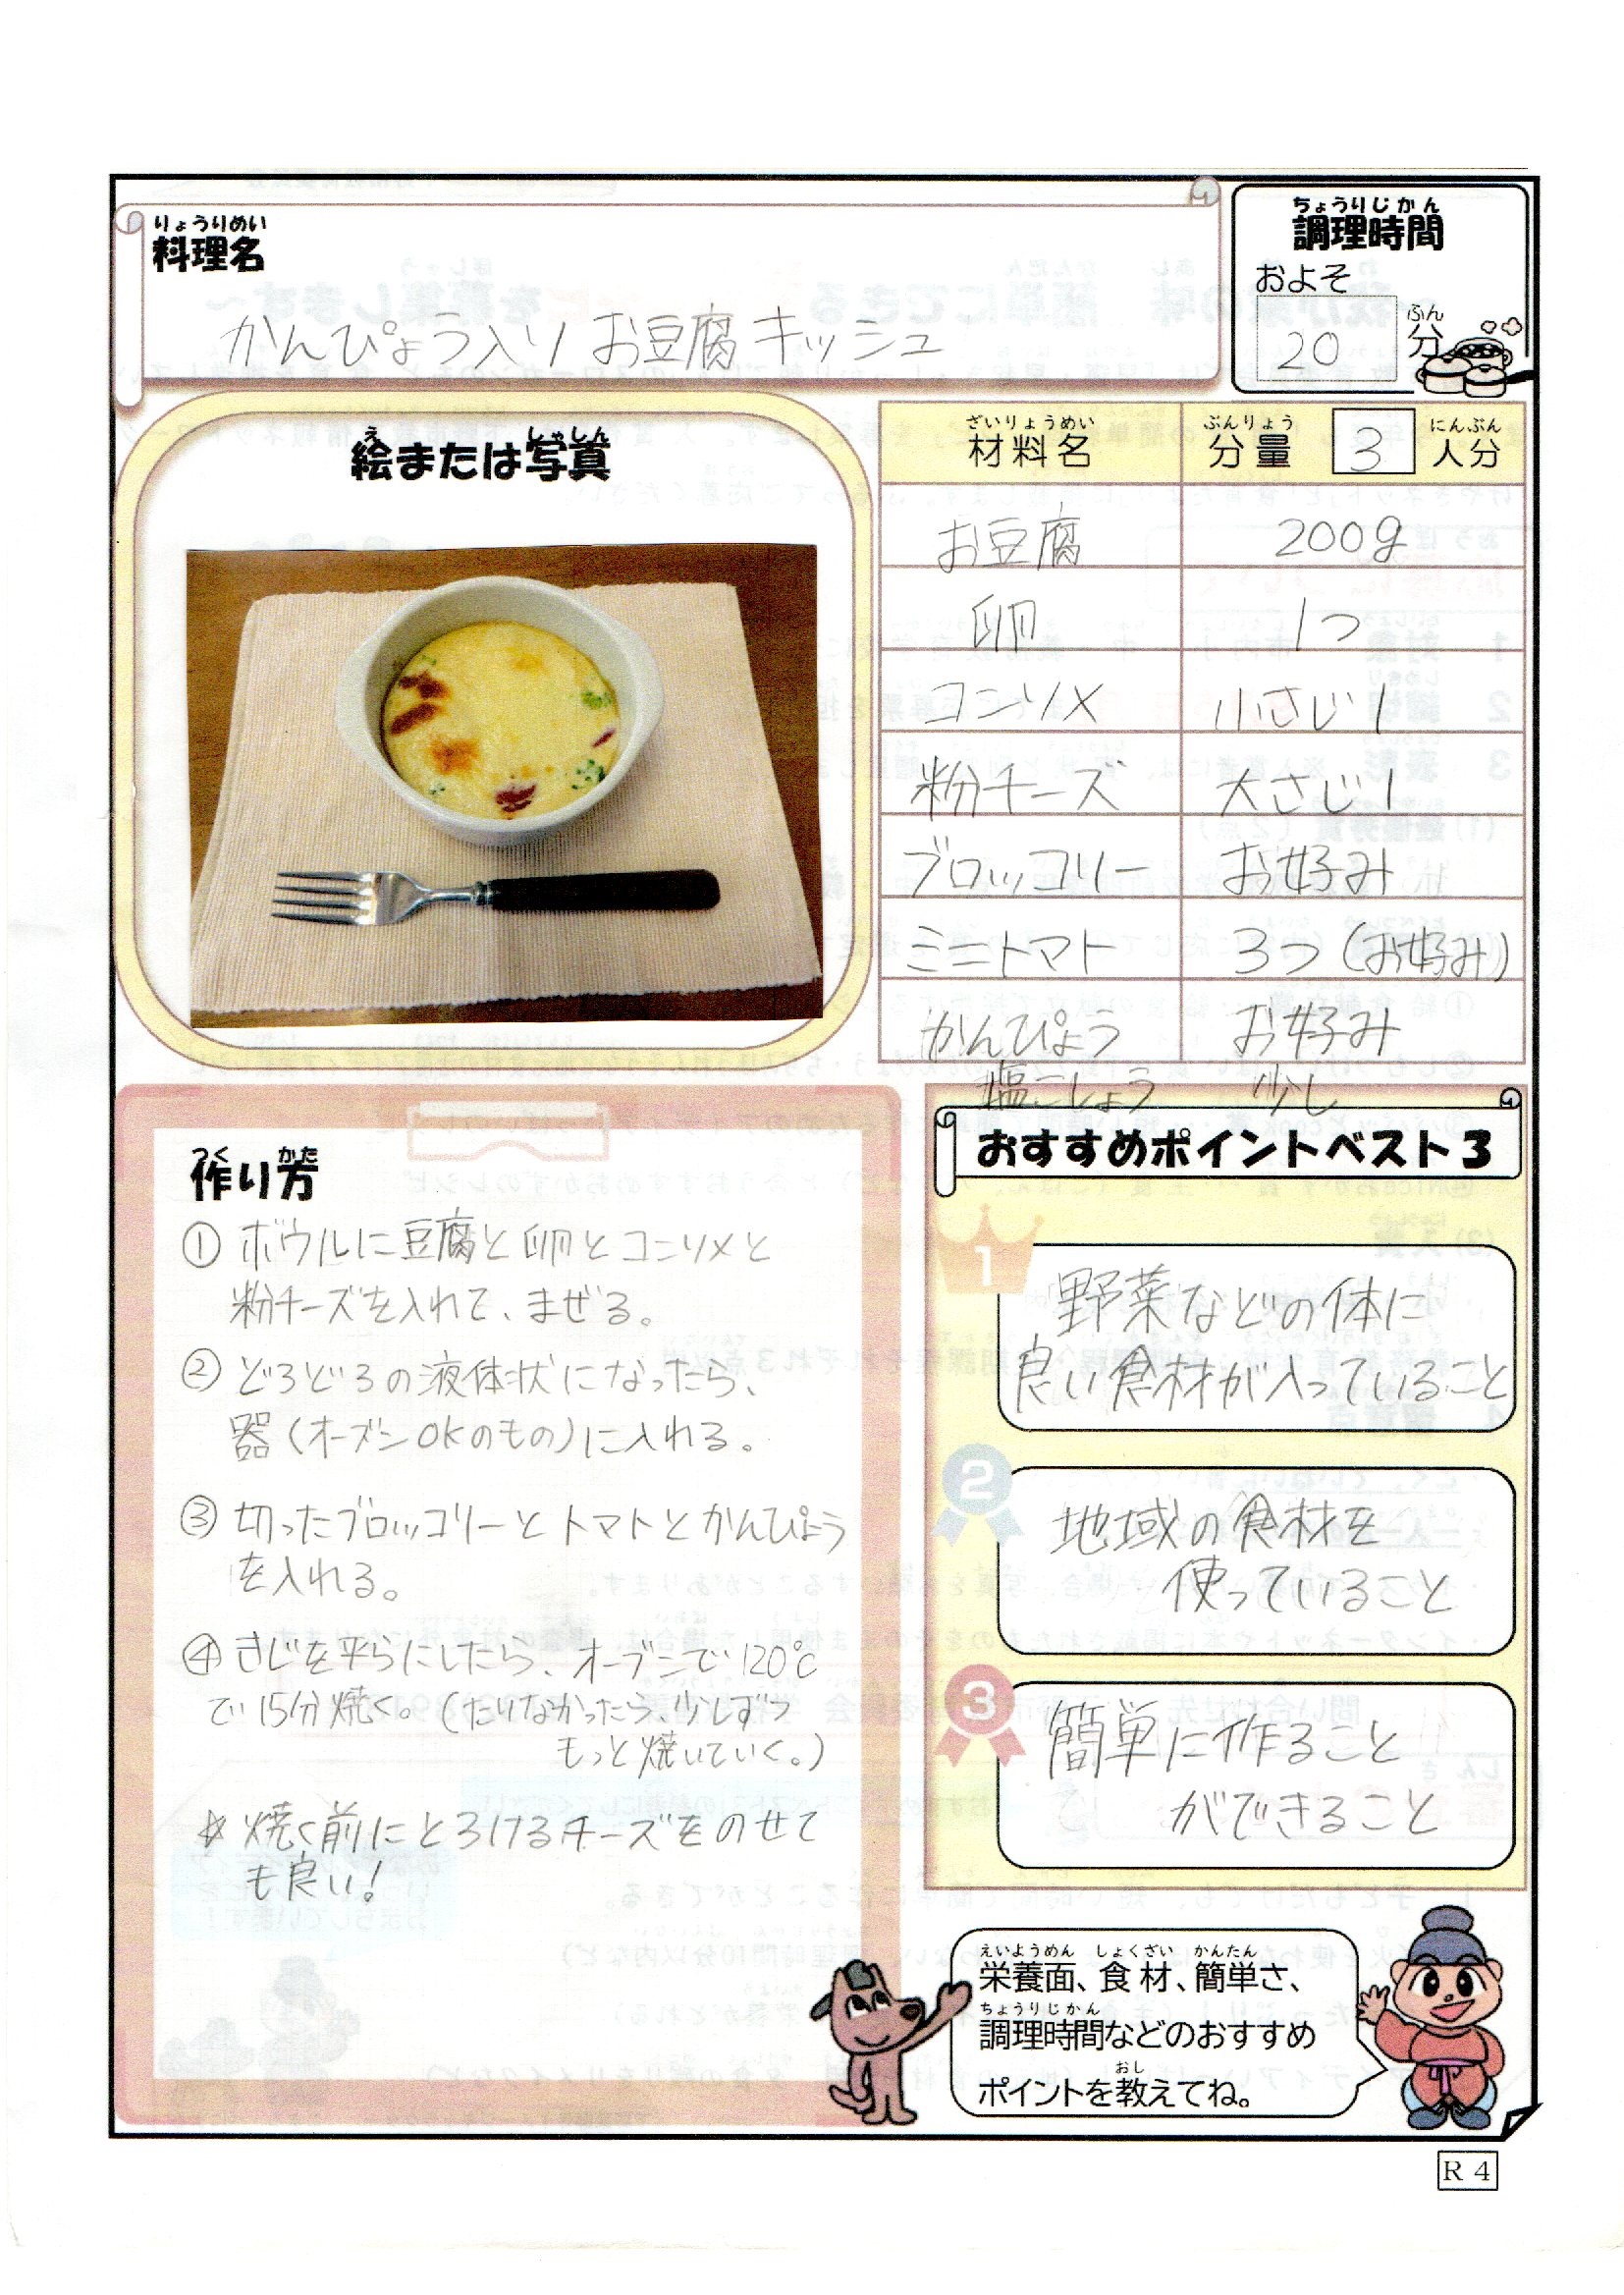 りょうりめい
料理名
かんぴょう入りお豆腐キッシュ
ちょうりじかん
調理時間
およそ
20
ふん
分
え しゃしん
絵または写真
ざいりょうめい ぶんりょう にんぶん
材料名 分量 3 人分
お豆腐 200g
卵 1つ
コンソメ 小さじ1
粉チーズ 大さじ1
ブロッコリー お好み
ミニトマト 3つ(お好み)
かんぴょう お好み
塩こしょう 少し
つく かた
作り方
① ボウルに豆腐と卵とコンソメと
粉チーズを入れて、まぜる。
② どろどろの液体状になったら、
器(オーブンOKのもの)に入れる。
③ 切ったブロッコリーとトマトとかんぴょう
を入れる。
④ きじを平らにしたら、オーブンで120℃
で15分焼く。(たりなかったら、少しずつ
もっと焼いていく。)
☆焼く前にとろけるチーズをのせて
も良い!
おすすめポイントベスト3
1
野菜などの体に
良い食材が入っていること
2
地域の食材を
使っていること
3
簡単に作ること
ができること
えいようめん しょくざい かんたん
栄養面、食材、簡単さ、
ちょうりじかん
調理時間などのおすすめ
おし
ポイントを教えてね。
R4